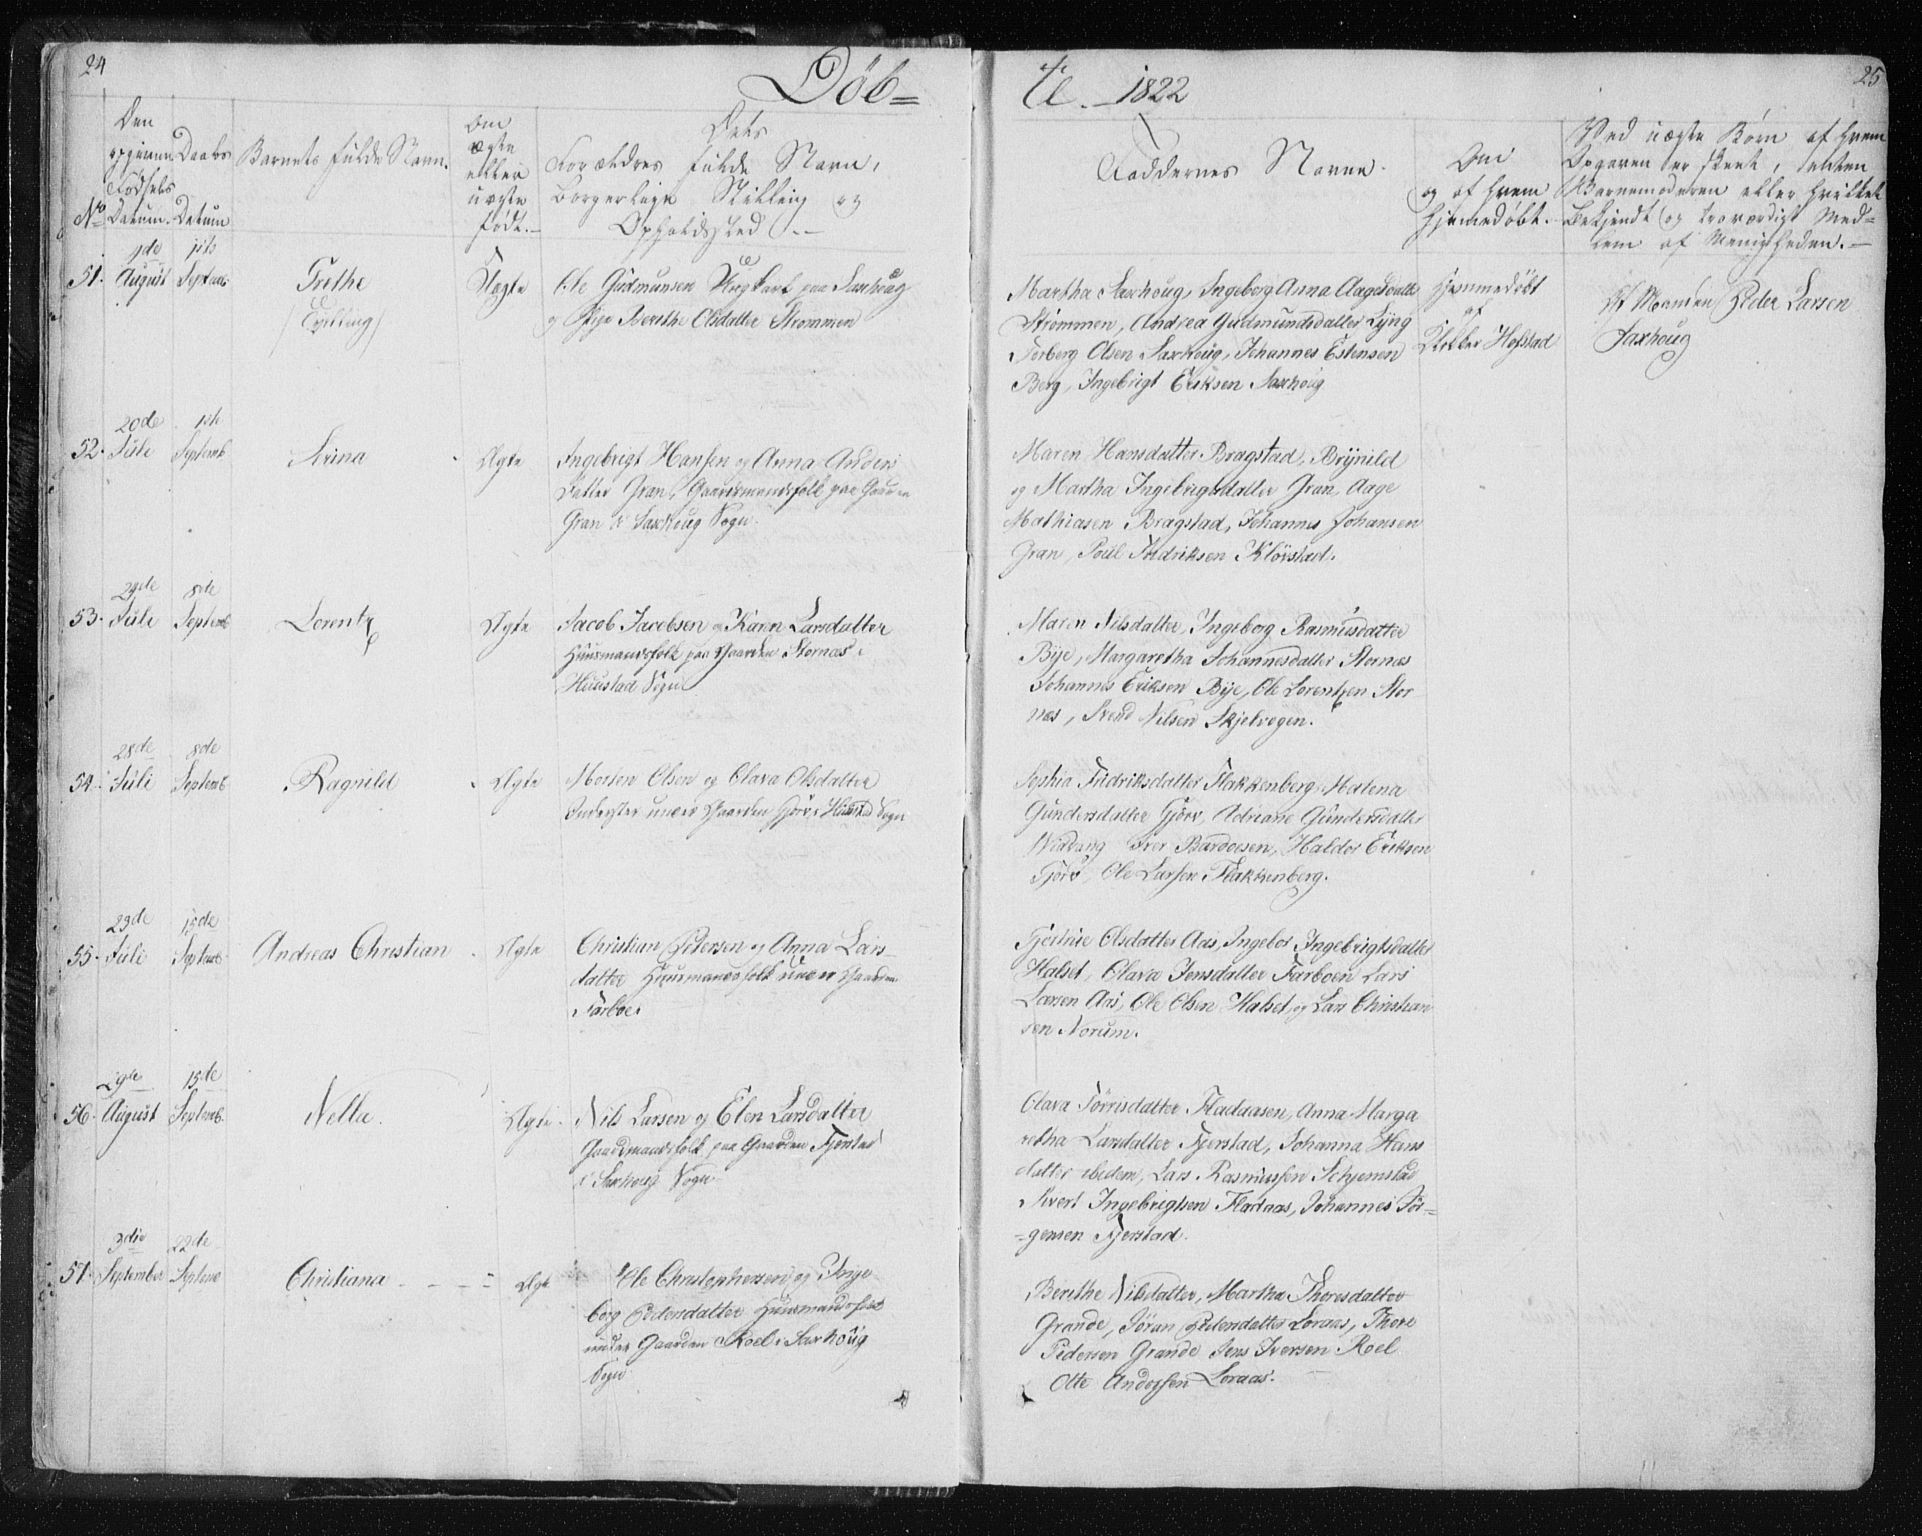 24
Døb=
te. - 1822
25
Den
opgivne
Fødsels
No Datum.
Daabs
Datum
Barnets fulde Navn.
Om
ægte
eller
uægte
født.-
Dets
Forældres fulde Navn,
borgerlige Stilling og
Opholdssted.-
Faddernes Navne.
Om
og af hvem
hjemmedøbt.
Ved uægte Børn af hvem
Opgaven er skeet, enten
Barnemoderen eller hvilket
bekjendt og troværdigt Med-
lem af Menigheden.-
51. August Septemb.
Grethe
(Tvilling)
Uægte
Ole Gudmunsen Ungkarl paa Saxhoug
og Pige Berethe Olsdatter Strømmen
Martha Saxhoug, Ingeborg Anna Aagesdatter
Strømmen, Andrea Gudmundsdatter Lyng
Torberg Olsen Saxhoug, Johannes Estensen
Berg, Ingebrigt Eriksen Saxhoug
hjemmedøbt
af
Klokker Hofstad
Af Manden Peder Larsen
Saxhoug
20de
52. Juli Septemb
Ægte
Ingebrigt Hansen og Anna Anders
Datter Gran, Gaardmandsfolk paa Gaarden
Gran i Saxhoug Sogn.
Maren Hansdatter Bragstad, Brynild
og Martha Ingebrigtsdatter Gran, Aage
Mathiasen Bragstad, Johannes Johansen
Gran, Poul Andriksen Kløvstad.
29de 8de
53. Juli Septemb
Lorentz
Ægte
Jacob Jacobsen og Karen Larsdatter
Huusmandsfolk paa Gaarden Stornæs i
Huustad Sogn
Maren Nilsdatter, Ingeborg Rasmusdatter
Bye, Margaretha Johannesdatter Stornæs
Johannes Eriksen Bye, Ole Lorentzen Stor
næs, Svend Nilsen Skjelvogen.
28de 8de
54. Juli Septemb
Ragnild
Ægte
Morten Olsen og Olava Olsdatter
Inderster under Gaarden Gjørv i Huustad Sogn
Sophia Fridriksdatter Flakkenberg, Malena
Gundersdatter Gjørv, Adriane Gundersdatter
Widdang Iver Bardoesen, Haldor Eriksen
Gjørv, Ole Larsen Flakkenberg.
23de 15de
55. Juli Septemb.
Andreas Christian
Ægte
Christian Petersen og Anna Lars-
datter Huusmandsfolk under Gaarden
Tarboe.
Gjertrue Olsdatter Aas, Ingebor Ingebrigtsdatter
Halset, Olava Jensdatter Tarboen Lars
Larsen Aas, Ole Olsen Halset, og Lars Christian
sen Norum.
15de
56. August Septemb.
Nella.
Ægte.
Nils Larsen og Elen Larsdatter
Gaardmandsfolk paa Gaarden Fjerstad
i Saxhoug Sogn
Olava Tørrisdatter Fladaasen, Anna Marga
retha Larsdatter Fjerstad, Johanna Hans
datter ibidem, Lars Rasmussen Schjemstad
Sivert Ingebrigtsen Fladaas, Johannes Jør=
=gensen Fjerstad.
3die 22de
57. September Septemb
Christiana
Ægte
Ole Christophersen og Inge
borg Pedersdatter Huusmandsfolk
under Gaarden Roel i Saxhoug
Sogn
Berithe Nilsdatter, Martha Thoresdatter
Grande, Jøran Pedersdatter Loraas, Thore
Pedersen Grande Jens Iversen Roel
Otte Andersen Loraas.